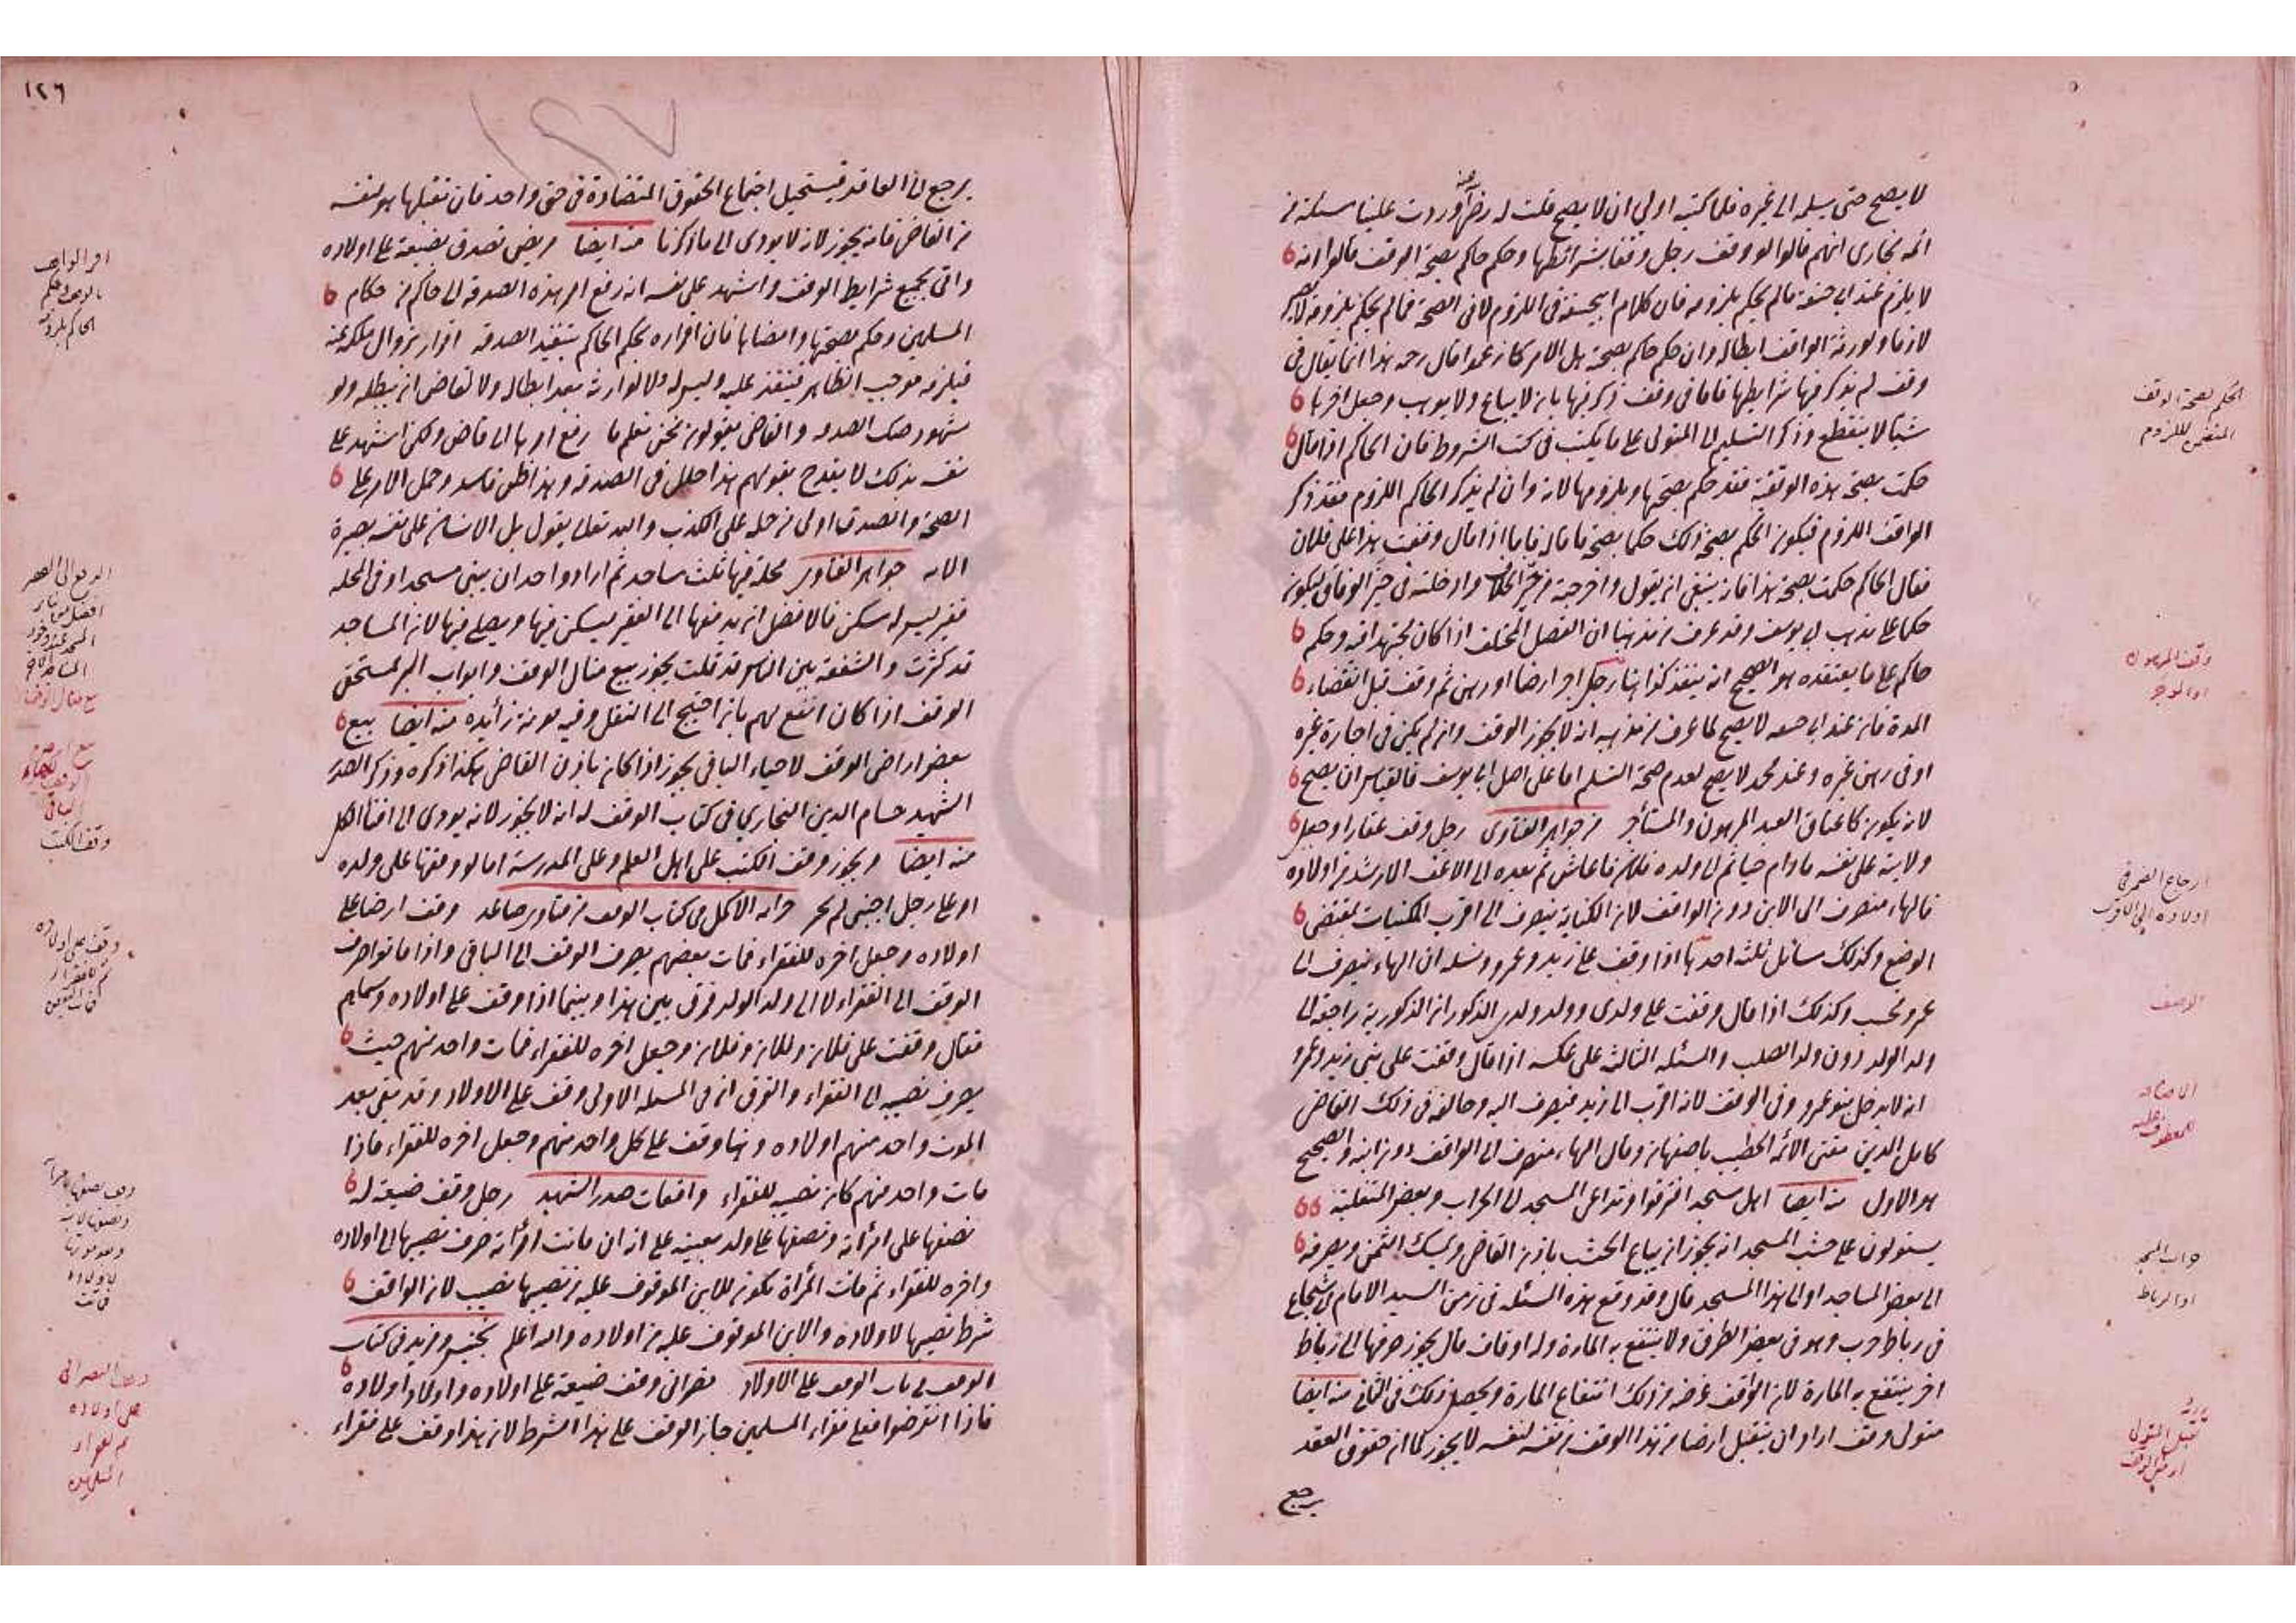 لا يصح حتى يسلمه الى غيره فلما كتبه اولى ان لا يصح قلت له وردت علينا مسئلة من
ائمة بخارى انهم قالوا لو وقف رجل وقفا بشرائطها وحكم حاكم بصحة الوقف قالوا انه
لا يلزم عند ابي حنيفة ما لم يحكم بلزومه فان كلام ابيحنيفة في اللزوم لا في الصحة فما لم يحكم بلزومه لا يصير
لازما ولورثة الواقف ابطاله وان حكم حاكم بصحته هل الامر كما زعموا قال رحمه هذا انما يقال في
وقف لم يذكر فيها شرايطها فاما في وقف ذكر فيها بانه لا يباع ولا يوهب وجعل اخرها
شيئا لا ينقطع وذكر التسليم الى المتولى على ما يكتب في كتب الشروط فان الحاكم اذا قال
حكمت بصحة هذه الوقفية فقد حكم بصحتها وبلزومها لانه وان لم يذكر الحاكم اللزوم فقد ذكر
الواقف اللزوم فيكون الحكم بصحة ذلك حكما بصحة ما قاله فاما اذا قال وقفت هذا على فلان
فقال الحاكم حكمت بصحة هذا فانه ينبغى ان يقول واخرجته من حيز الخلاف وادخلته في حيز الوفاق ليكون
حكما على مذهب ابي يوسف وقد عرف من مذهبنا ان الفصل المختلف اذا كان مجتهدا فيه وحكم
حاكم على ما يعتقده هو الصحيح انه ينفذ كذا هنا رجل اجر ارضا او رهن ثم وقف قبل انقضاء
المدة فان عند ابي حنيفه لا يصح لما عرف من مذهبه انه لا يجوز الوقف وان لم يكن في اجارة غيره
او في رهن غيره وعند محمد لا يصح لعدم صحة التسليم اما على اصل ابي يوسف فالقياس ان يصح
لانه يكون كاعتاق العبد المرهون والمستأجر من جواهر الفتاوى رجل وقف عقارا وجعل
ولايته على نفسه ما دام حيا ثم الى ولده فلان ما عاش ثم بعده الى الاعف الارشد من اولاده
فالهاء منصرف الى الابن دون الواقف لان الكناية ينصرف الى اقرب المكنيات بمقتضى
الوضع وكذلك مسائل ثلثة احدها اذا وقف على زيد وعمرو ونسله ان الهاء ينصرف الى
عمرو فحسب وكذلك اذا قال وقفت على ولدى وولد ولدى الذكور ان الذكورية راجعة الى
ولد الولد دون ولد الصلب والمسئلة الثالثة على عكسه اذا قال وقفت على بني زيد وعمرو
انه لا يدخل بنو عمرو في الوقف لانه اقرب الى زيد فيصرف اليه وخالفه في ذلك القاضى
كامل الدين مفتى الائمة الخطيب باصفهان وقال الهاء منصرف الى الواقف دون ابنه والصحيح
هو الاول منه ايضا اهل مسجد افترقوا وتداعى المسجد الى الخراب وبعض المتغلبة
يستولون على خشب المسجد انه يجوز ان يباع الخشب باذن القاضى ويمسك الثمن ويصرفه
الى بعض المساجد او الى هذا المسجد قال وقد وقع هذه المسئلة في زمن السيد الامام ابي شجاع
في رباط خرب وهو في بعض الطرق ولا ينتفع به المارة وله اوقاف قال يجوز صرفها الى رباط
اخر ينتفع به المارة لان الواقف غرضه من ذلك انتفاع المارة ويحصل ذلك في الثاني منه ايضا
متولى وقف اراد ان يتقبل ارضا من هذا الوقف من نفسه لنفسه لا يجوز كما ان حقوق العقد
يرجع
الحكم بصحة الوقف
المتضمن للزوم
وقف المرهون
ارجاع الضمير في
اولاده الى الاقرب
خراب المسجد
او الرباط
١٢٦
يرجع الى العاقد فيستحيل اجتماع الحقوق المتضادة في حق واحد فان تقبلها هو لنفسه
من القاضى فانه يجوز لانه لا يودى الى ما ذكرنا منه ايضا مريض تصدق بضيعة على اولاده
واتى بجميع شرايط الوقف واشهد على نفسه انه رفع امر هذه الصدقة الى حاكم من حكام
المسلمين وحكم بصحتها وامضاها فان اقراره بحكم الحاكم بتنفيذ الصدقة اقرار بزوال ملكه عنه
فيلزمه موجب الظاهر فينفذ عليه وليس له ولا لوارث بعد ابطاله ولا لقاض ان يبطله ولو
شهود صك الصدقة والقاضى يقولون نحن نعلم ما رفع امرها الى قاض ولكن اشهد على
نفسه بذلك لا يقدح بقولهم هذا خلل في الصدقة وهذا ظن فاسد وحمل الامر على
الصحة والصدق اولى من حمله على الكذب والله تعالى يقول بل الانسان على نفسه بصيرة
الاية جواهر الفتاوى محلة فيها ثلث مساجد ثم اراد واحد ان يبني مسجدا وفي المحلة
فقير ليس له مسكن فالافضل ان يدفعها الى الفقير ليسكن فيها ويصلى فيها لان المساجد
قد كثرت والشفقة بين الناس قد قلت يجوز بيع منال الوقف وابواب البر لمستحق
الوقف اذا كان انفع لهم بان احتيج الى النقل وفيه مونة زائدة منه ايضا بيع
بعض اراضى الوقف لاحياء الباقى يجوز اذا كان باذن القاضى هكذا ذكره وذكر الصدر
الشهيد حسام الدين البخاري في كتاب الوقف له انه لا يجوز لانه يودى الى افناء الكل
منه ايضا ويجوز وقف الكتب على اهل العلم وعلى المدرسة اما لو وقفها على ولده
او على رجل اجنبى لم يجز خزانة الاكمل في كتاب الوقف من فتاوى صاعد وقف ارضا على
اولاده وجعل اخره للفقراء فمات بعضهم يصرف الوقف الى الباقى واذا ماتوا صرف
الوقف الى الفقراء لا الى ولد الولد فرق بين هذا وبينما اذا وقف على اولاده وسماهم
فقال وقفت على فلان وفلان وفلان وجعل اخره للفقراء فمات واحد منهم حيث
يصرف نصيبه الى الفقراء والفرق ان في المسئلة الاولى وقف على الاولاد وقد بقى بعد
الموت واحد منهم اولاده وهنا وقف على كل واحد منهم وجعل اخره للفقراء فاذا
مات واحد منهم كان نصيبه للفقراء واقعات صدر الشهيد رجل وقف ضيعة له
نصفها على امرأته ونصفها على ولد بعينه على انه ان ماتت امرأته صرف نصيبها الى اولاده
واخره للفقراء ثم ماتت المرأة تكون للابن الموقوف عليه من نصيبها نصيب لان الواقف
شرط نصيبها لاولاده والابن الموقوف عليه من اولاده والله اعلم تجنيس ومزيد في كتاب
الوقف في باب الوقف على الاولاد نصرانى وقف ضيعة على اولاده واولاد اولاده
فاذا انقرضوا فعلى فقراء المسلمين جاز الوقف على هذا الشرط لان هذا وقف على فقراء
وقف الكتب